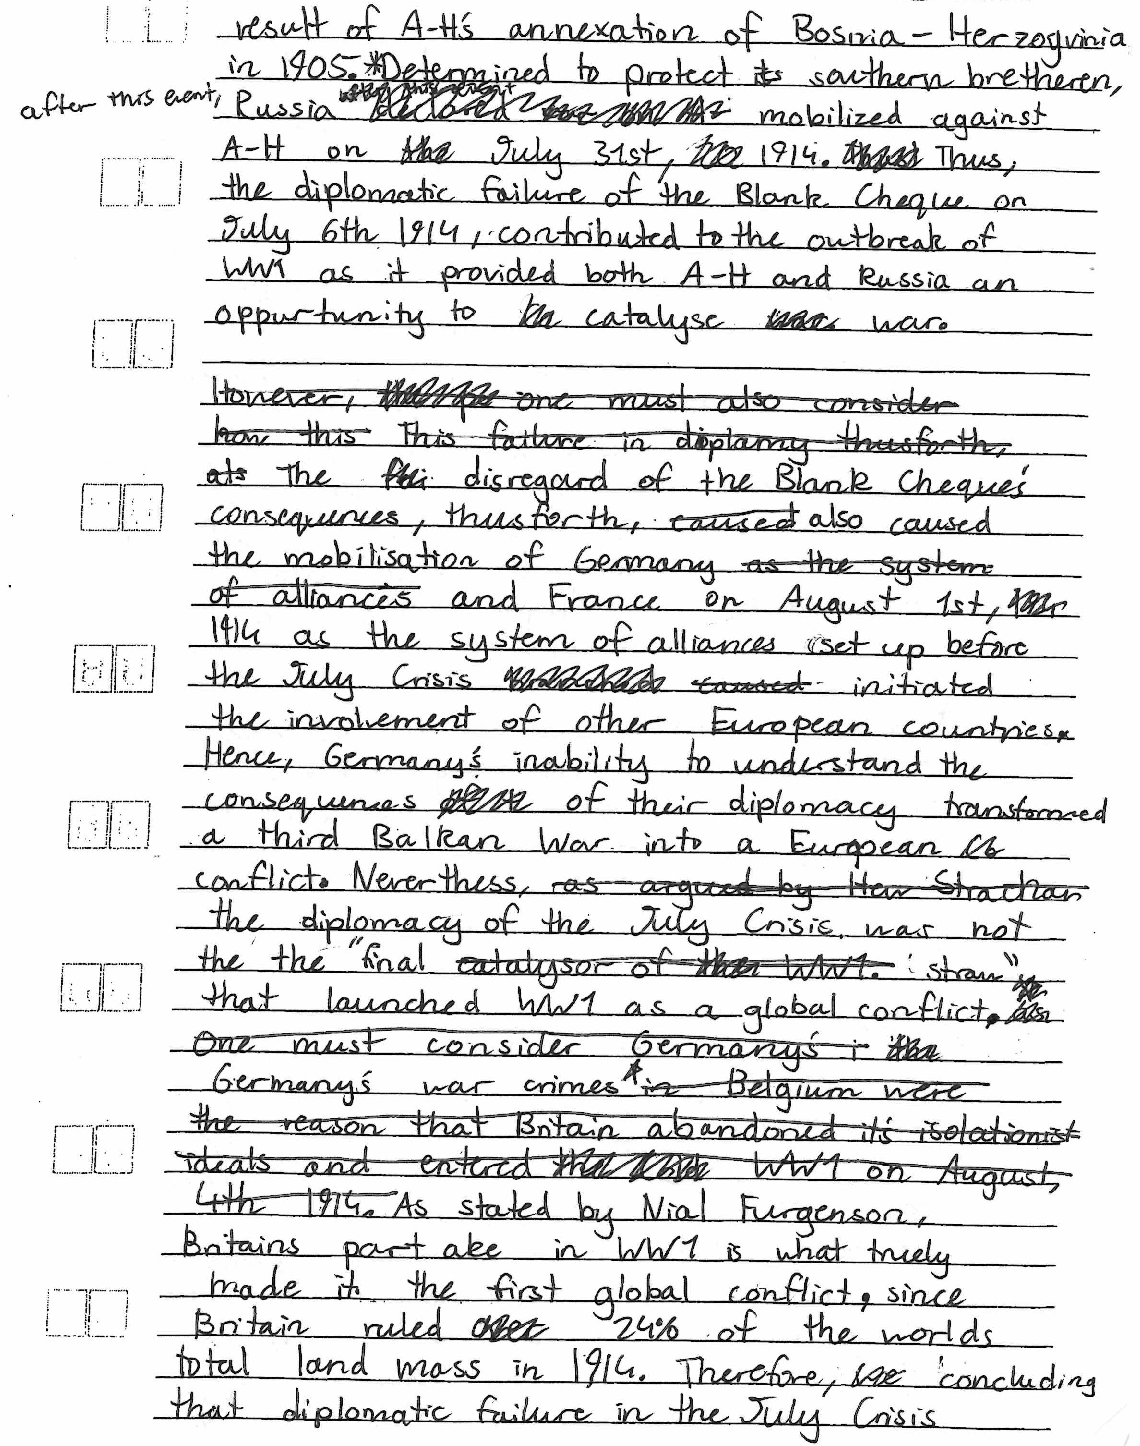 result of A-H's annexation of Bosnia - Herzogvinia
in 1905.*Determined to protect its southern bretheren,
after this event, Russia declared mobilized against
A-H on the July 31st, 1914. Thus,
the diplomatic failure of the Blank Cheque on
July 6th 1914, contributed to the outbreak of
WW1 as it provided both A-H and Russia an
oppurtunity to catalyse war.
However, one must also consider
how this This failure in diplamy thusforth,
als The disregard of the Blank Cheque's
consequences, thusforth, caused also caused
the mobilisation of Germany as the system
of alliances and France on August 1st,
1914 as the system of alliances set up before
the July Crisis caused initiated
the involvement of other European countries.
Hence, Germany's inability to understand the
consequences of their diplomacy transformed
a third Balkan War into a European
conflict. Neverthess, as argued by Hew Strachan
the diplomacy of the July Crisis was not
the the "final catalysor of WW1. straw"
that launched WW1 as a global conflict.
One must consider Germany's i
Germany's war crimes * in Belgium were
the reason that Britain abandoned it's isolationist
ideals and entered WW1 on August,
4th 1914. As stated by Nial Furgenson,
Britains part ake in WW1 is what truely
made it the first global conflict, since
Britain ruled over 24% of the worlds
total land mass in 1914. Therefore, concluding
that diplomatic failure in the July Crisis